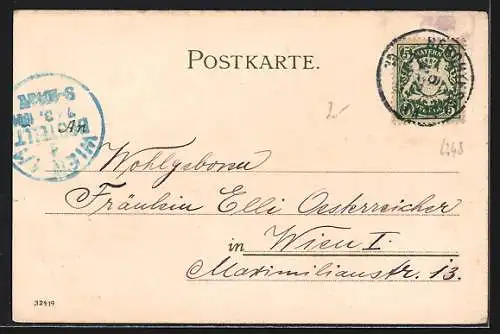 POSTKARTE.
BAYERN
5 5
2.-
4345
WIEN 1/1
BESTELLT
An
Wohlgeboren
Fräulein Elli Oesterreicher
in Wien I.
Maximilianstr. 13.
32419